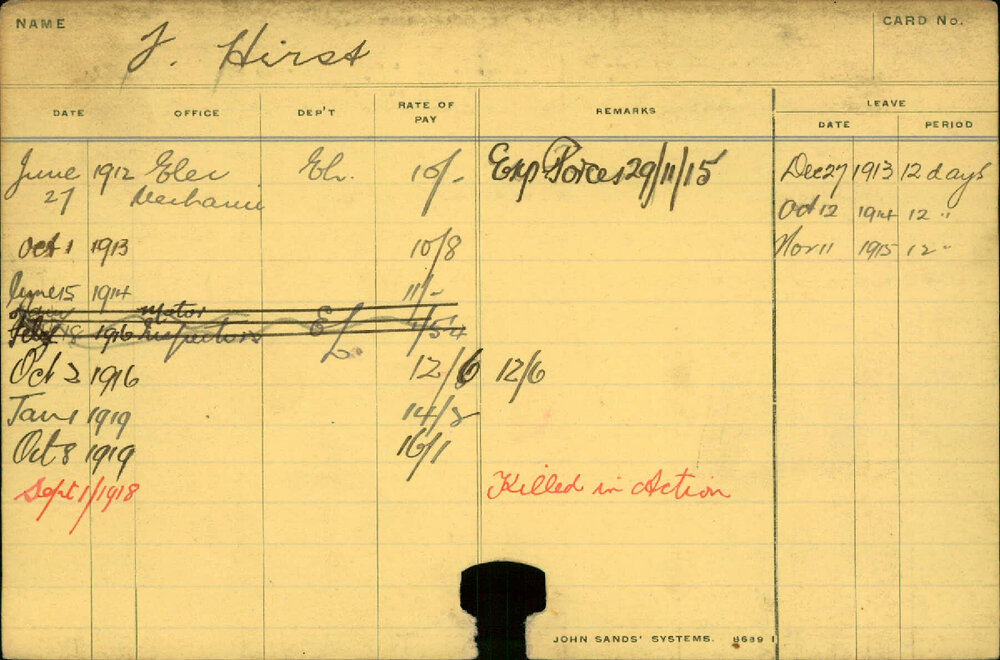 NAME
CARD No.
F. Hirst
DATE OFFICE DEP'T RATE OF PAY REMARKS LEAVE
DATE PERIOD
June 1912 Elec El. 10/- Exp Forces 29/11/15 Dec 27 1913 12 days
27 Mechanic Oct 12 1914 12 "
Oct 1 1913 10/8 Nov 11 1915 12 "
June 15 1914 11/-
Motor
18 1916 Inspector El
Oct 2 1916 12/6 12/6
Jan 1 1919 14/3
Oct 8 1919 16/1
Sept 1/1918 Killed in Action
JOHN SANDS' SYSTEMS. 8689